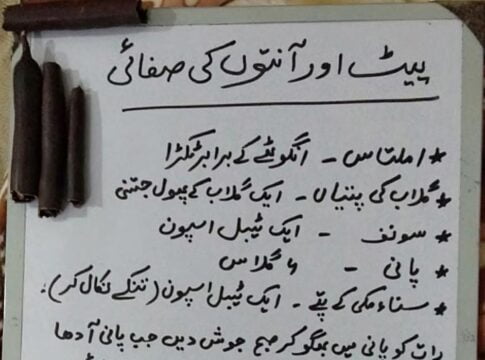 پیٹ اور آنتوں کی صفائی
* املتاس - انگوٹھے کے برابر ٹکڑا
* گلاب کی پتیاں - ایک گلاب کے پھول جتنی
* سونف - ایک ٹیبل اسپون
* پانی - ۶ گلاس
* سناء مکی کے پتے - ایک ٹیبل اسپون (تنکے نکال کر)۔
رات کو پانی میں بھگو کر صبح جوش دیں جب پانی آدھا